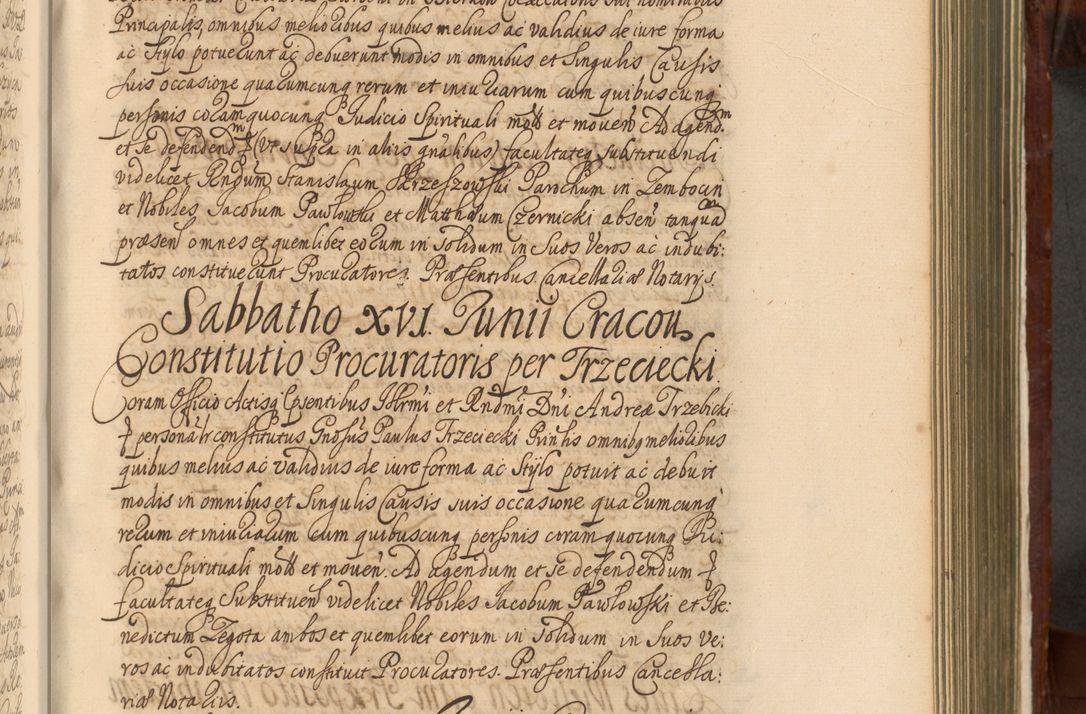 Principalis, omnibus melioribus quibus melius ac validius de iure forma
ac Stylo potuerunt ac debuerunt modis in omnibus et Singulis Causis
suis occasione quarumcunq rerum et iniuriarum cum quibuscunq
personis coram quocunq Judicio Spirituali mott et moven Ad agend
et se defendend (ut supra in aliis gnalibus) facultateq substituendi
videlicet Rndum Stanislaum Skrzeszowski Parochum in Zembocin
et Nobiles Jacobum Pawlowski et Matthæum Czernicki absen tanqua
præsen omnes et quemlibet eorum in solidum in suos Veros ac indubi:
tatos constituerunt Procuratores. Præsentibus Cancellariæ Notarys.
Sabbatho XVI. Junii Cracou
Constitutio Procuratoris per Trzeciecki
Coram Officio Actisq Cpsentibus Illrmi et Rndmi Dni Andreæ Trzebicki
personalr constitutus Gnosus Paulus Trzeciecki Prinlis omnibq melioribus
quibus melius ac validius de iure forma ac Stylo potuit ac debuit
modis in omnibus et Singulis Causis suis occasione quarumcunq
rerum et iniuriarum cum quibuscunq personis coram quocunq Ju:
dicio Spirituali mott et moven. Ad agendum et se defendendum
facultateq Substituen videlicet Nobiles Jacobum Pawlowski et Be:
nedictum Zegota ambos et quemlibet eorum in solidum in suos Ve:
ros ac indubitatos constituit Procuratores. Præsentibus Cancella:
riæ Notariis.